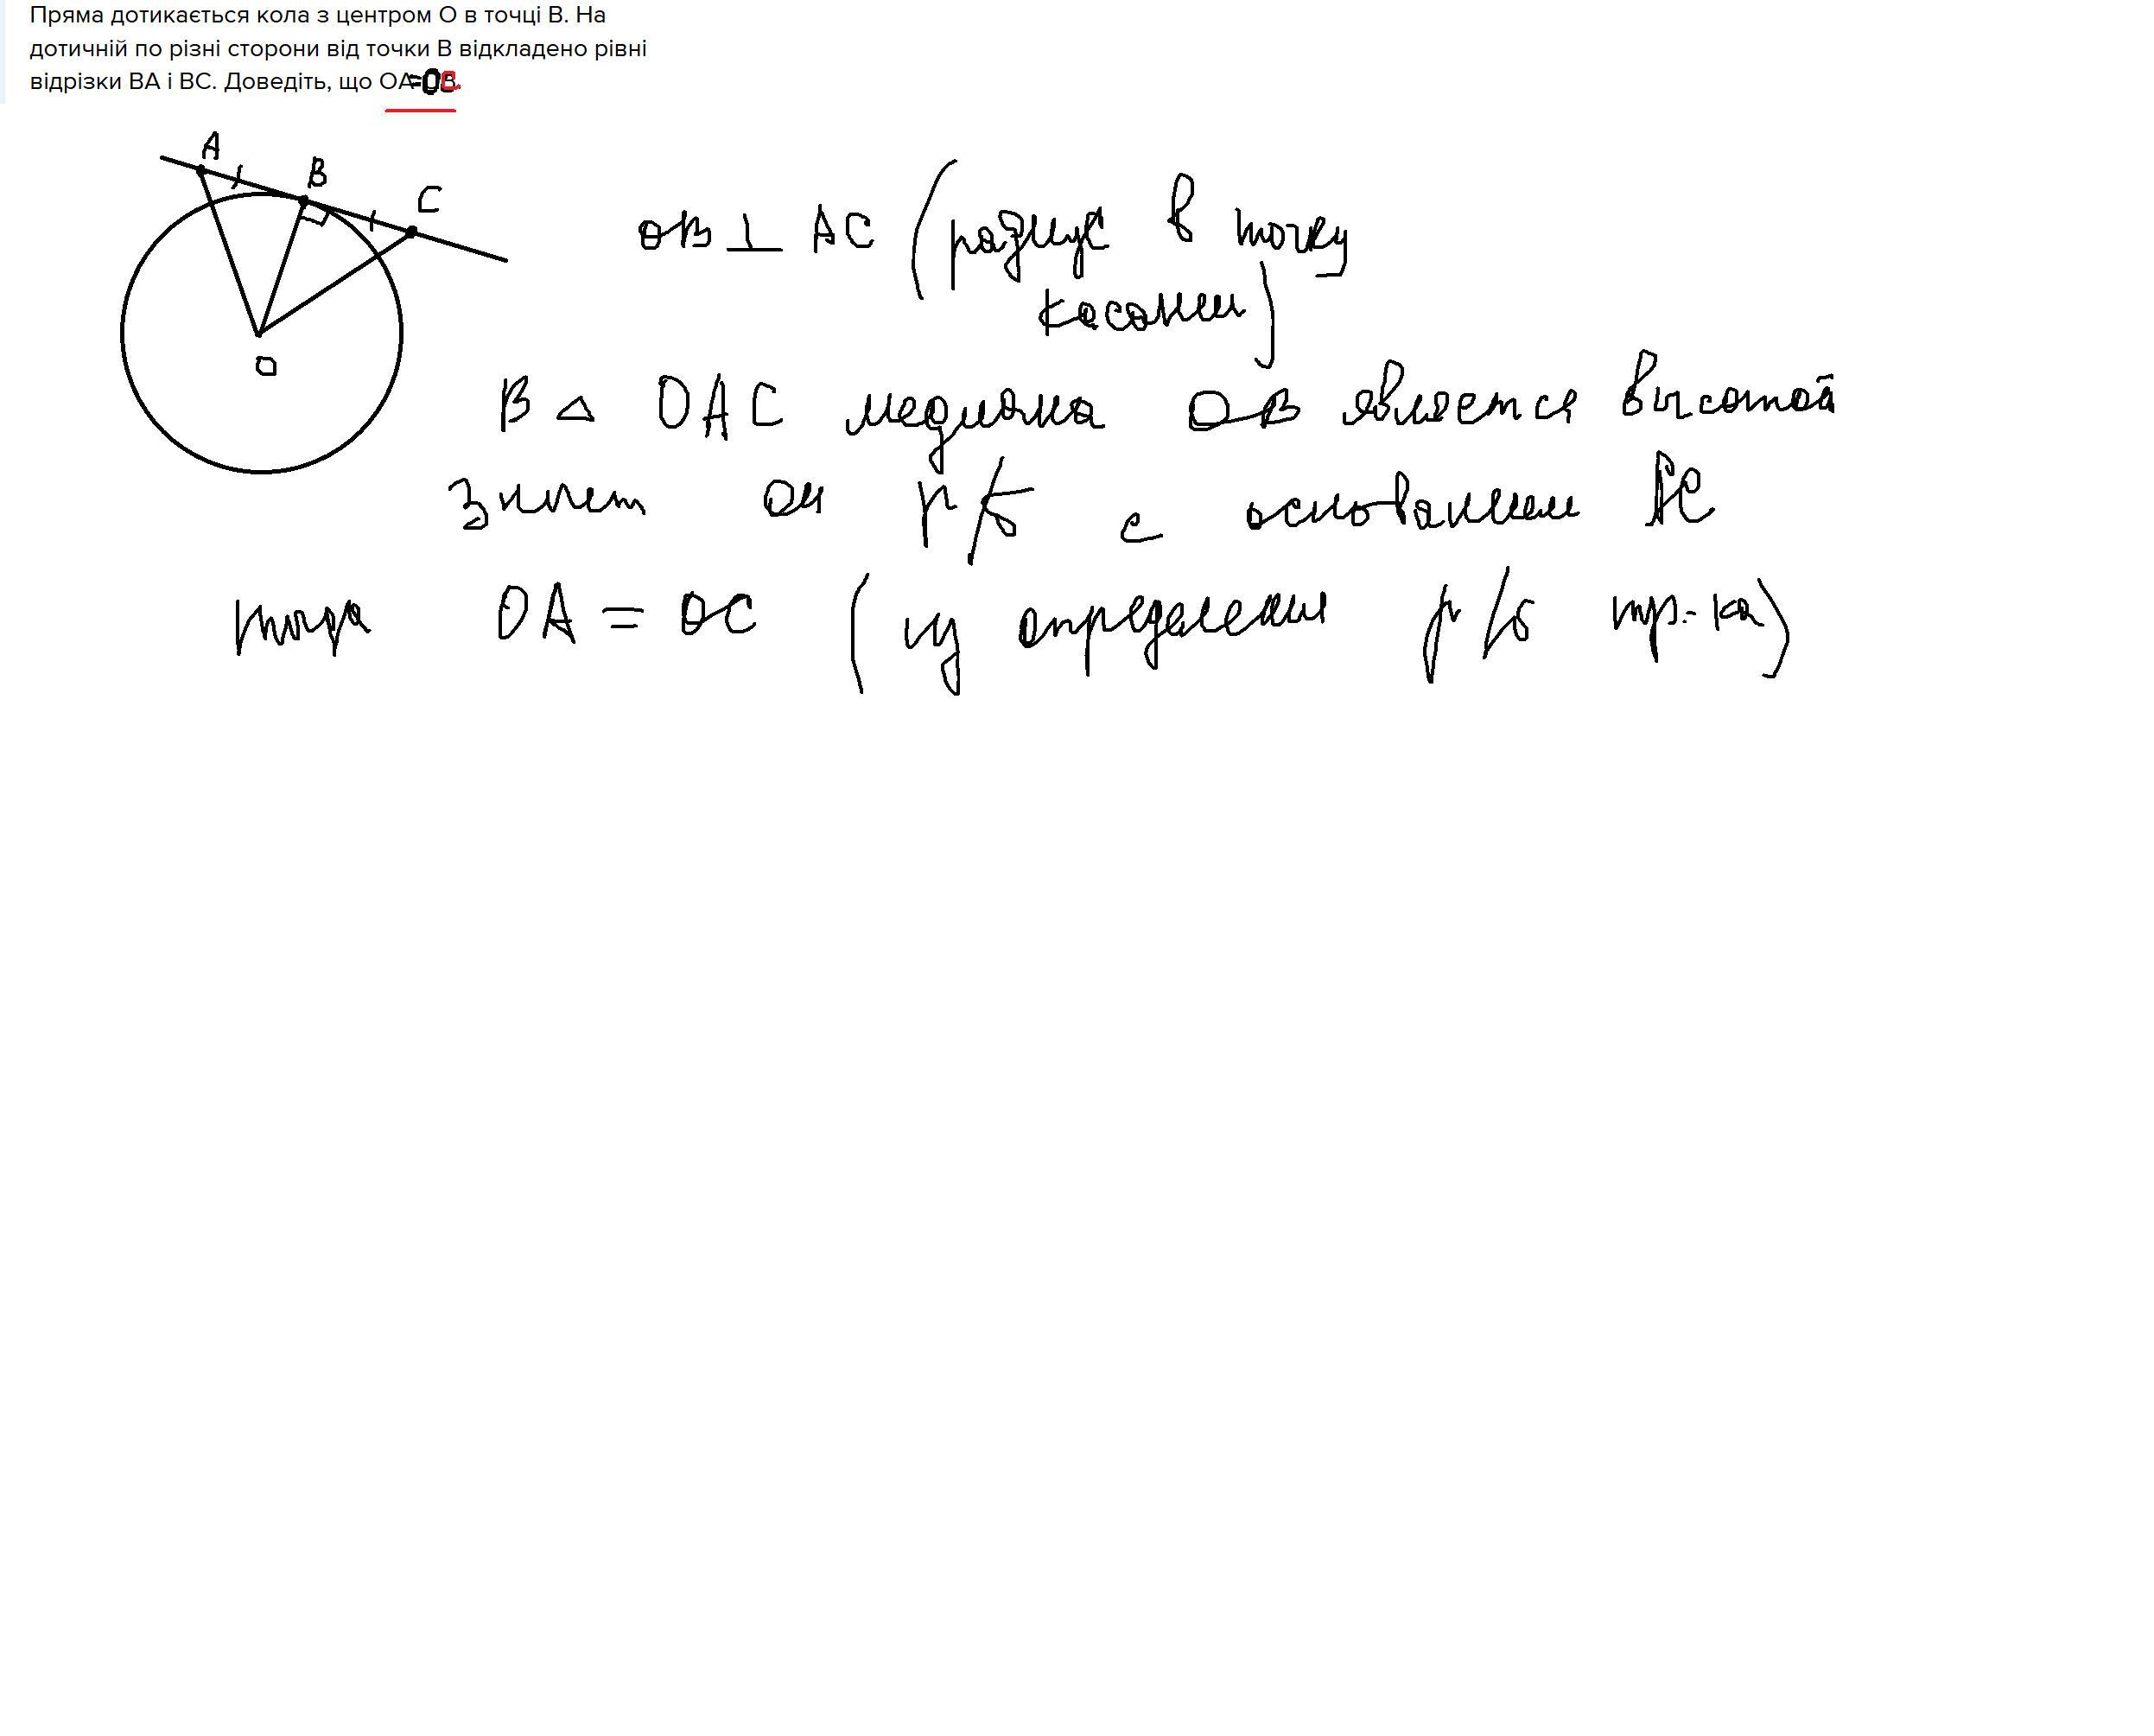 Пряма дотикається кола з центром О в точці В. На
дотичній по різні сторони від точки В відкладено рівні
відрізки ВА і ВС. Доведіть, що ОА=ОС.
A
B
C
O
OB ⊥ AC (радиус в точку
касания)
В △ OAC медиана OB является высотой
Значит он р/б с основанием AC
тогда OA = OC (из определения р/б тр-ка)